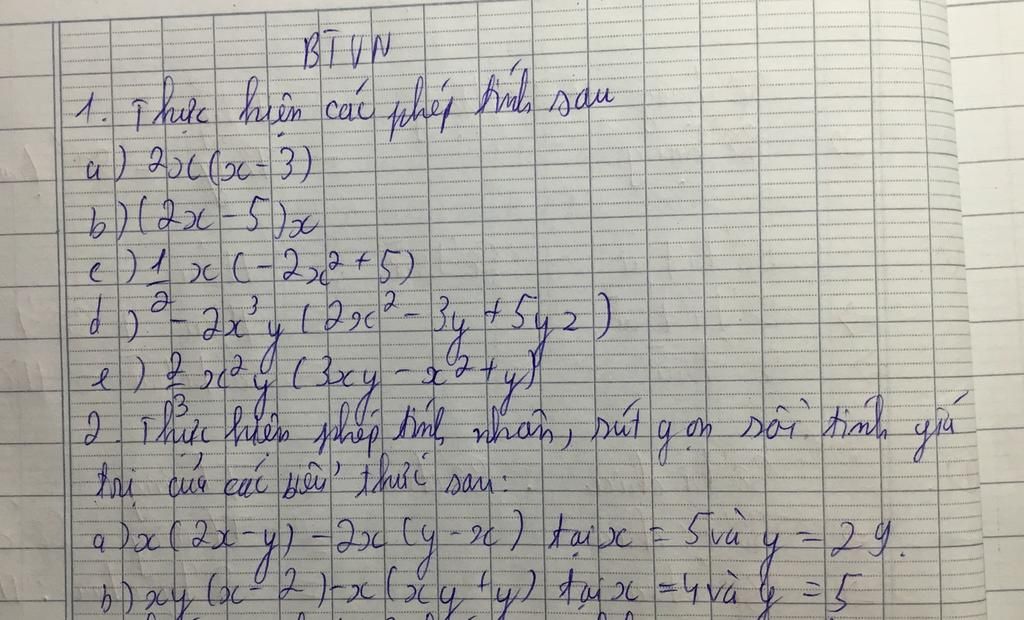 BTVN
1. Thực hiện các phép tính sau
a) 2x(x-3)
b) (2x-5)x
c) 1/2 x(-2x²+5)
d) -2x³y(2x²-3y+5yz)
e) 2/3 x²y(3xy-x²+y)
2. Thực hiện phép tính nhân, rút gọn rồi tính giá
trị của các biểu thức sau:
a) x(2x-y)-2x(y-x) tại x = 5 và y = 29.
b) xy(x-2)-x(xy+y) tại x = 4 và y = 5